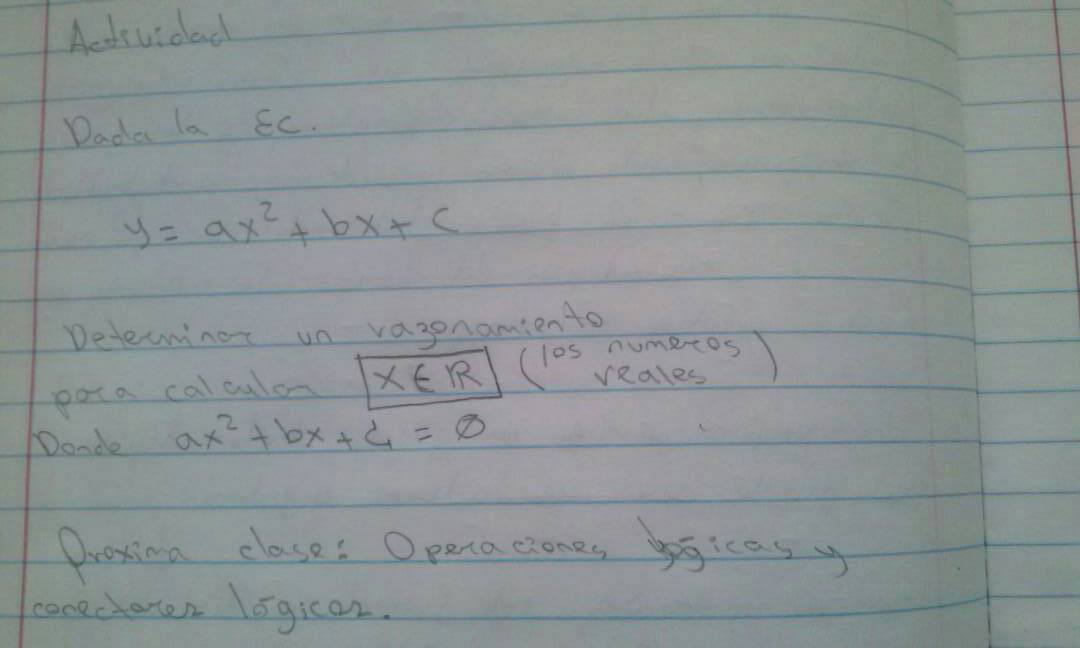 Actividad
Dada la Ec.
y = ax² + bx + c
Determinar un razonamiento
para calcular x ∈ ℝ (los numeros reales)
Donde ax² + bx + c = 0
Proxima clase: Operaciones lógicas y
conectores lógicos.